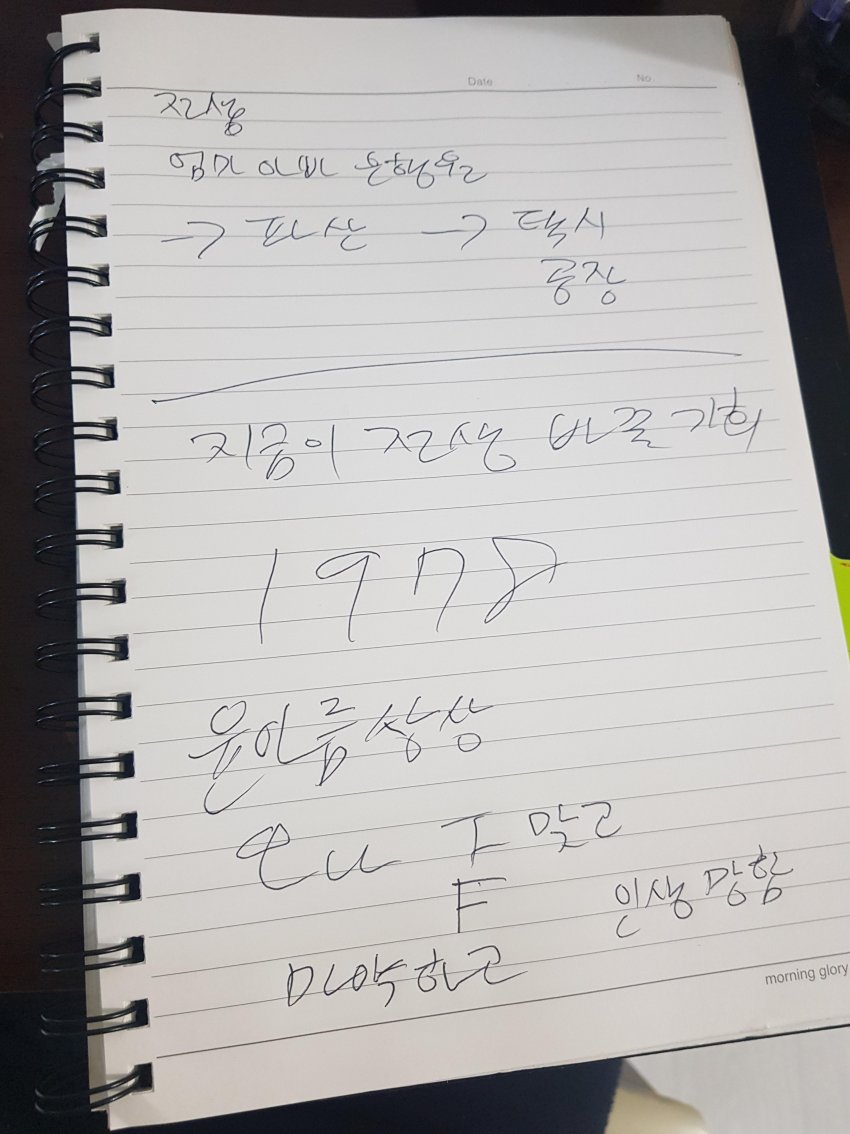 Date No.
전생
엄마 아빠 은행원
→ 파산 → 택시
공장
지금이 전생 바꿀 기회
1978
윤아름 상상
언니 T 말고
F
인생 망함
마약하고
morning glory